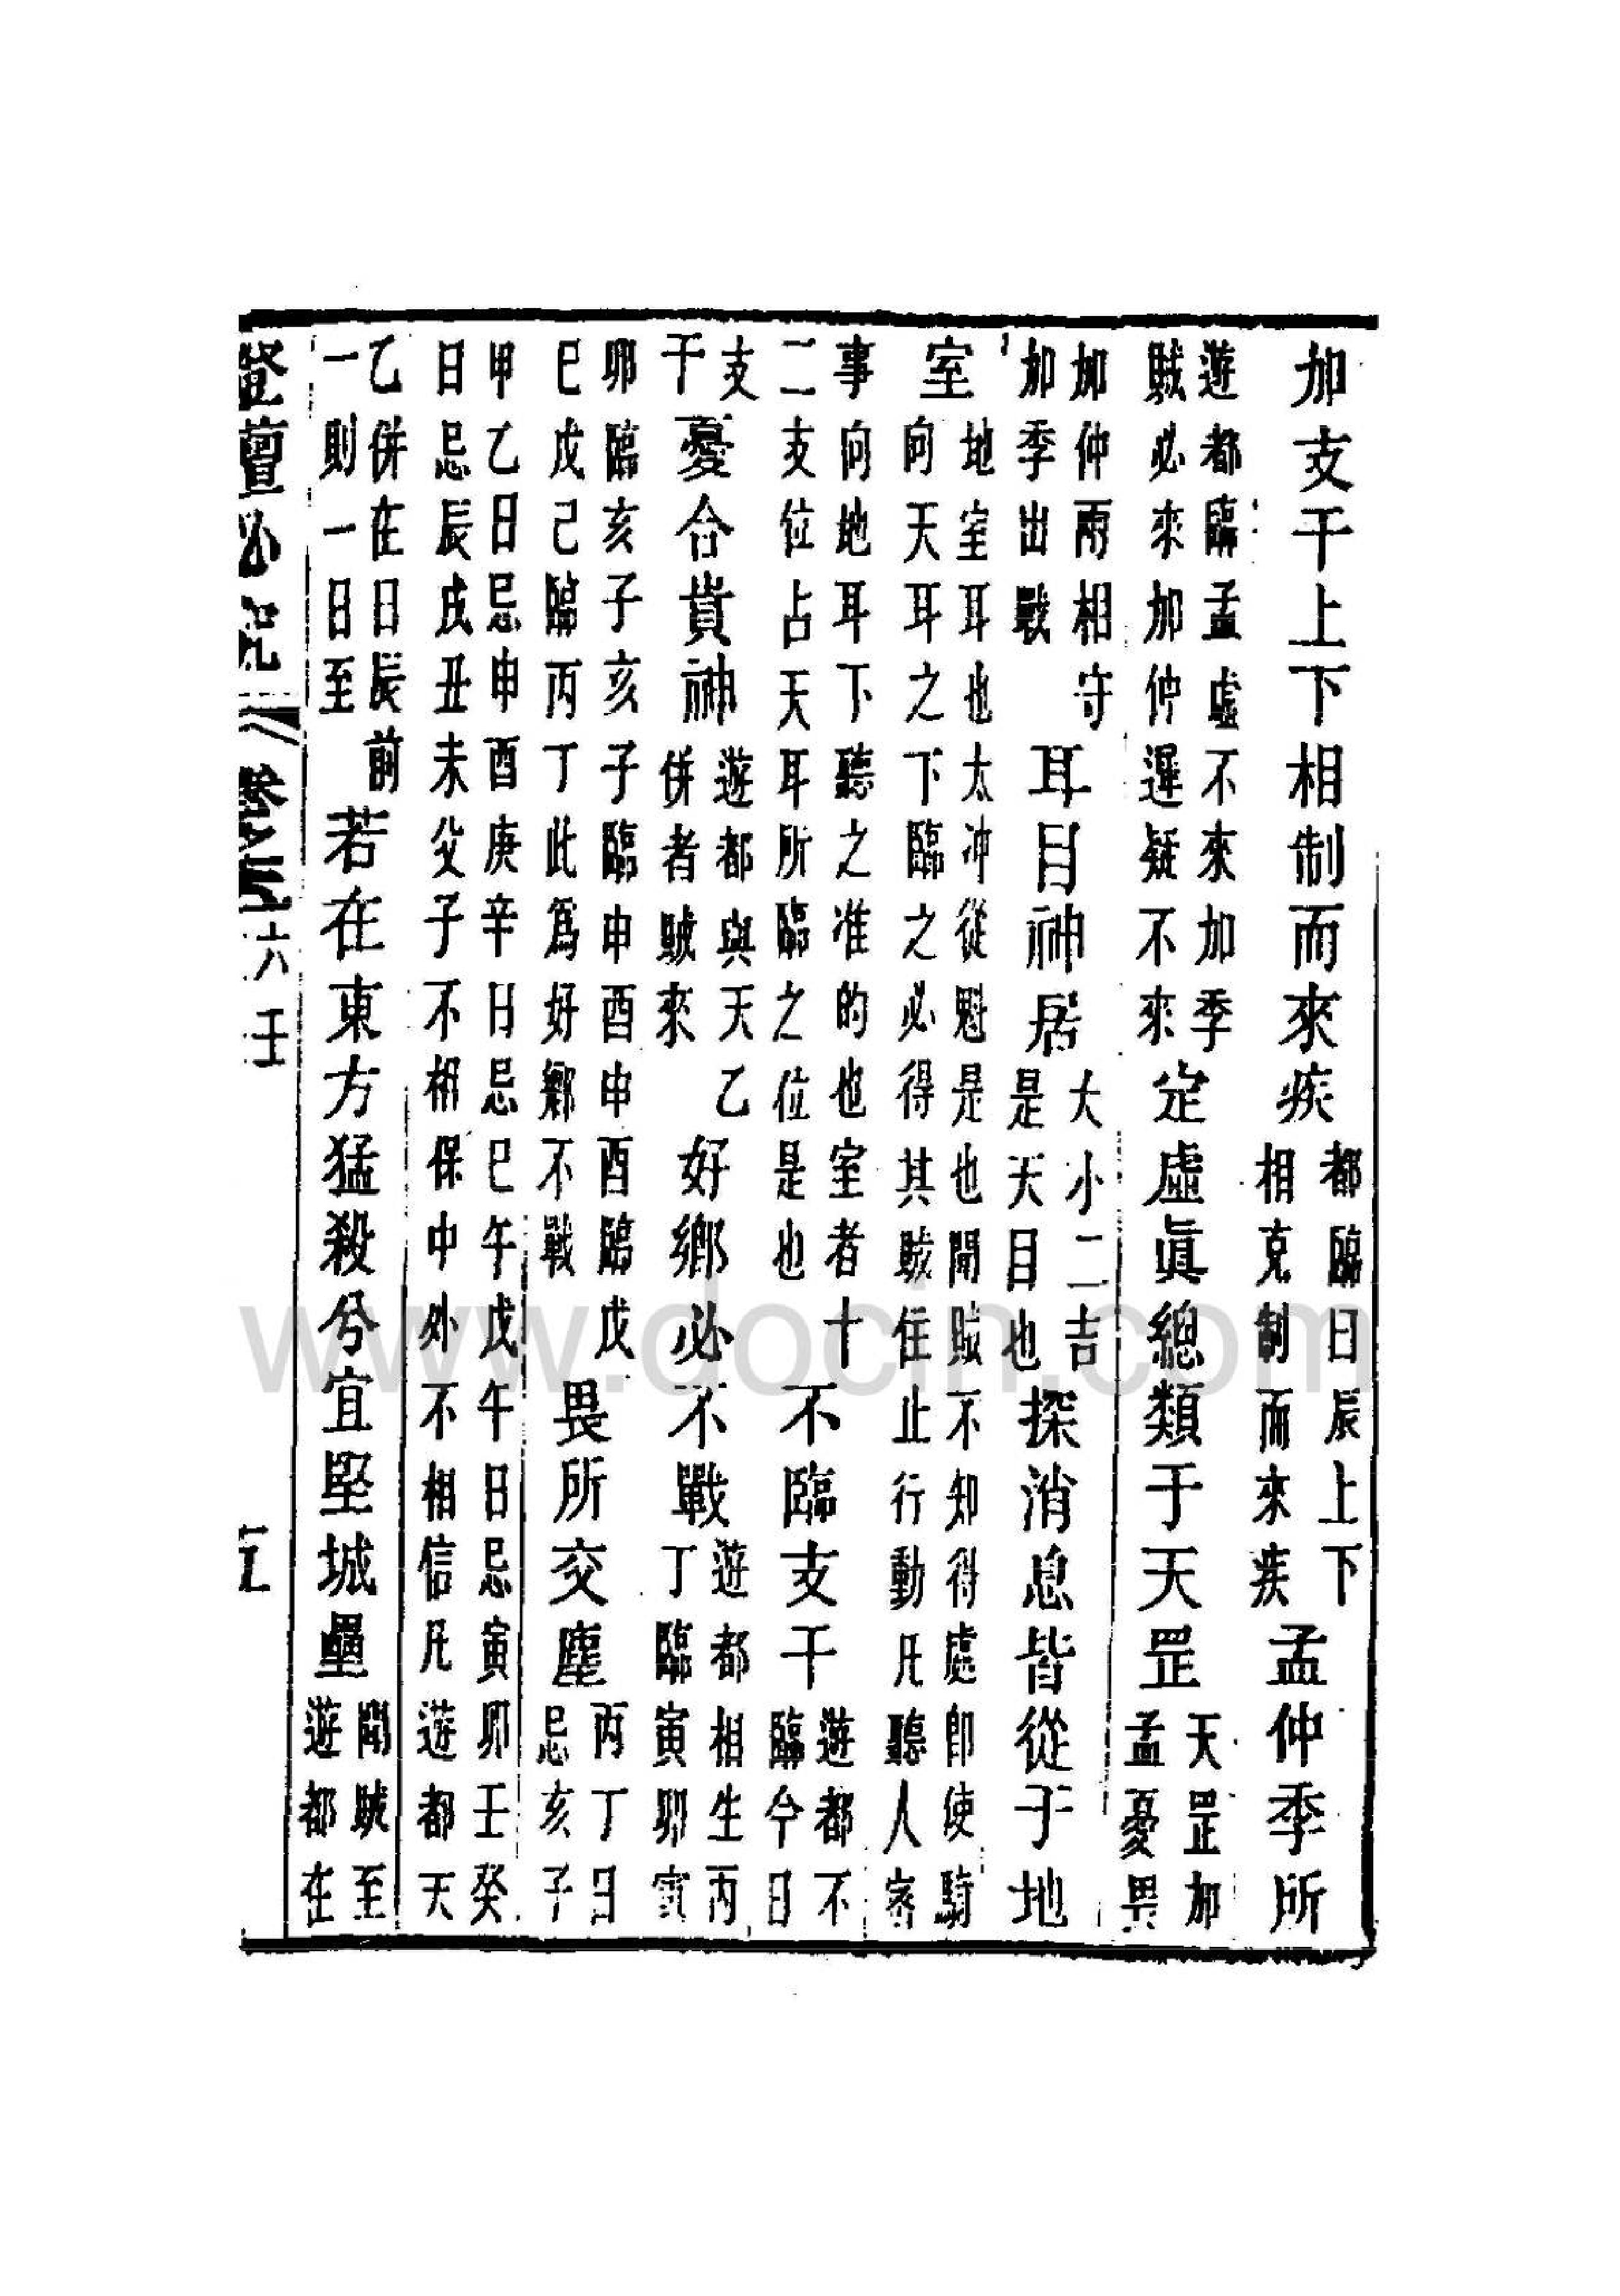 加支干上下相制而來疾都臨日辰上下相克制而來疾孟仲季所
遊都臨孟虛不來加季賊必來加仲遲疑不來定虛眞總類于天罡天罡加孟憂畏
加仲兩相守加季出戰耳目神居大小二吉是天目也探消息皆從于地
室地室耳也太冲從魁是也聞賊不知得處卽使騎向天耳之下臨之必得其賊住止行動凡聽人客
事向地耳下聽之准的也室者十二支位占天耳所臨之位是也不臨支干遊都不臨今日
支干憂合貴神遊都與天乙併者賊來好鄉必不戰遊都相生丙丁臨寅卯寅
卯臨亥子亥子臨申酉申酉臨戊巳戊己臨丙丁此爲好鄉不戰畏所交塵丙丁日忌亥子
甲乙日忌申酉庚辛日忌巳午戊午日忌寅卯壬癸日忌辰戌丑未父子不相保中外不相信凡遊都天
乙併在日辰前一則一日至若在東方猛殺兮宜堅城壘聞賊至遊都在
登壇必究 卷之三 六壬 五
www.docin.com